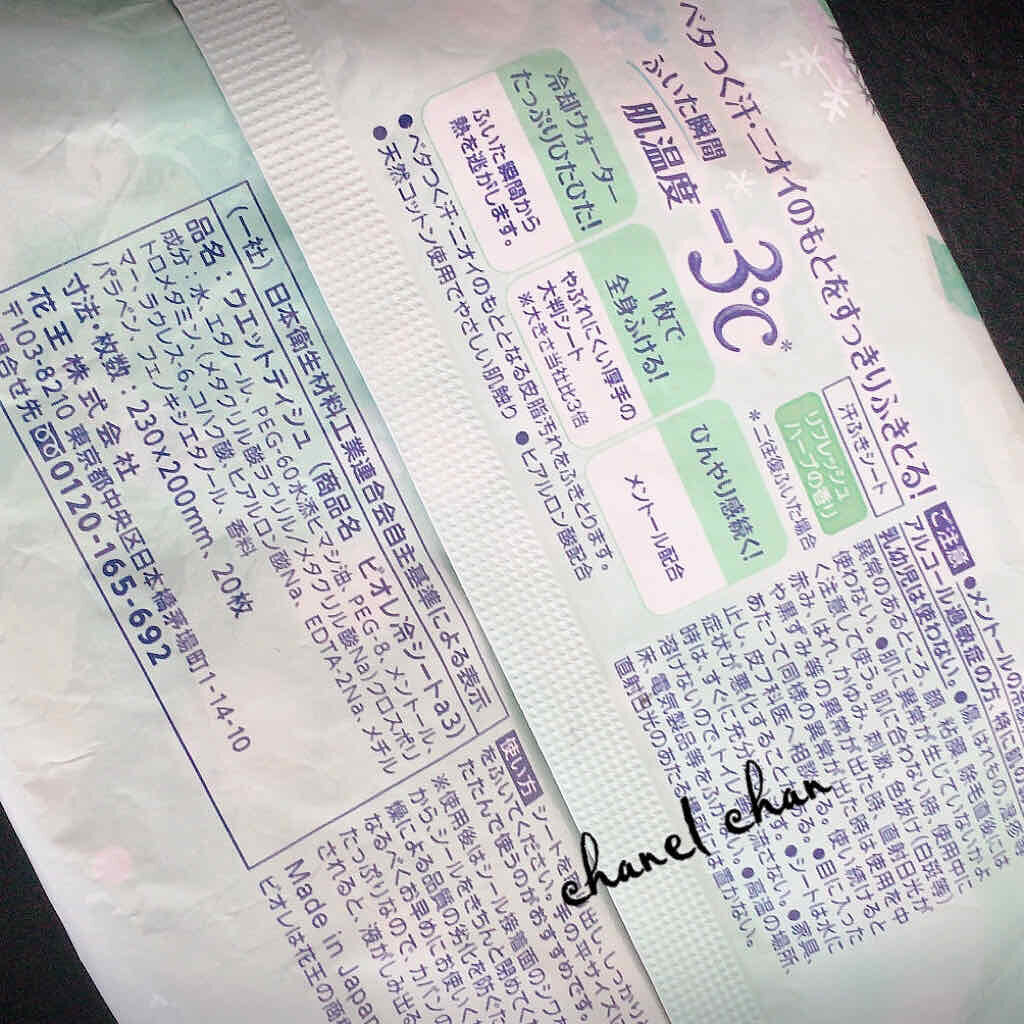 ベタつく汗・ニオイのもとをすっきりふきとる!
ふいた瞬間
肌温度
-3℃*
汗ふきシート
リフレッシュ
ハーブの香り
*二往復ふいた場合
冷却ウォーター
たっぷりひたひた!
ふいた瞬間から
熱を逃がします。
1枚で
全身ふける!
やぶれにくい厚手の
大判シート
※大きさ当社比3倍
ひんやり感続く!
メントール配合
●ベタつく汗・ニオイのもととなる皮脂汚れをふきとります。
●天然コットン使用でやさしい肌触り ●ヒアルロン酸配合
ご注意
●メントールの
アルコール過敏症の方、特に肌の
乳幼児は使わない。●傷、はれもの、湿疹等
異常のあるところ、顔、粘膜、除毛直後には
使わない。●肌に異常が生じていないかよ
く注意して使う。肌に合わない時、使用中に
赤み、はれ、かゆみ、刺激、色抜け(白斑等)
や黒ずみ等の異常が出た時、直射日光が
あたって同様の異常が出た時は使用を中
止し、皮フ科医へ相談する。使い続けると
症状が悪化することがある。●目に入った
時は、すぐに充分洗い流す。●シートは水に
溶けないので、トイレに流さない。●家具、
床、電気製品等をふかない。●高温の場所、
直射日光のあたる場所には置かない。
(一社)日本衛生材料工業連合会自主基準による表示
品名:ウエットティシュ(商品名 ビオレ冷シートa3)
成分:水、エタノール、PEG-60水添ヒマシ油、PEG-8、メントール、
トロメタミン、(メタクリル酸ラウリル/メタクリル酸Na)クロスポリ
マー、ラウレス-6、コハク酸、ヒアルロン酸Na、EDTA-2Na、メチル
パラベン、フェノキシエタノール、香料
寸法・枚数:230×200mm、20枚
花王株式会社
〒103-8210 東京都中央区日本橋茅場町1-14-10
問合せ先 0120-165-692
使い方
シートを
出し、しっかり
をふいてください。手の平サイズに
たたんで使うのがおすすめです。
※使用後はシール接着面のシワが
から、シールをきちんと閉めてく
燥による品質の劣化を防ぐため
なるべくお早めにお使いく
たっぷりなので、カバンの
されると、液がしみ出る
Made in Japan
ビオレは花王の商
chanel chan